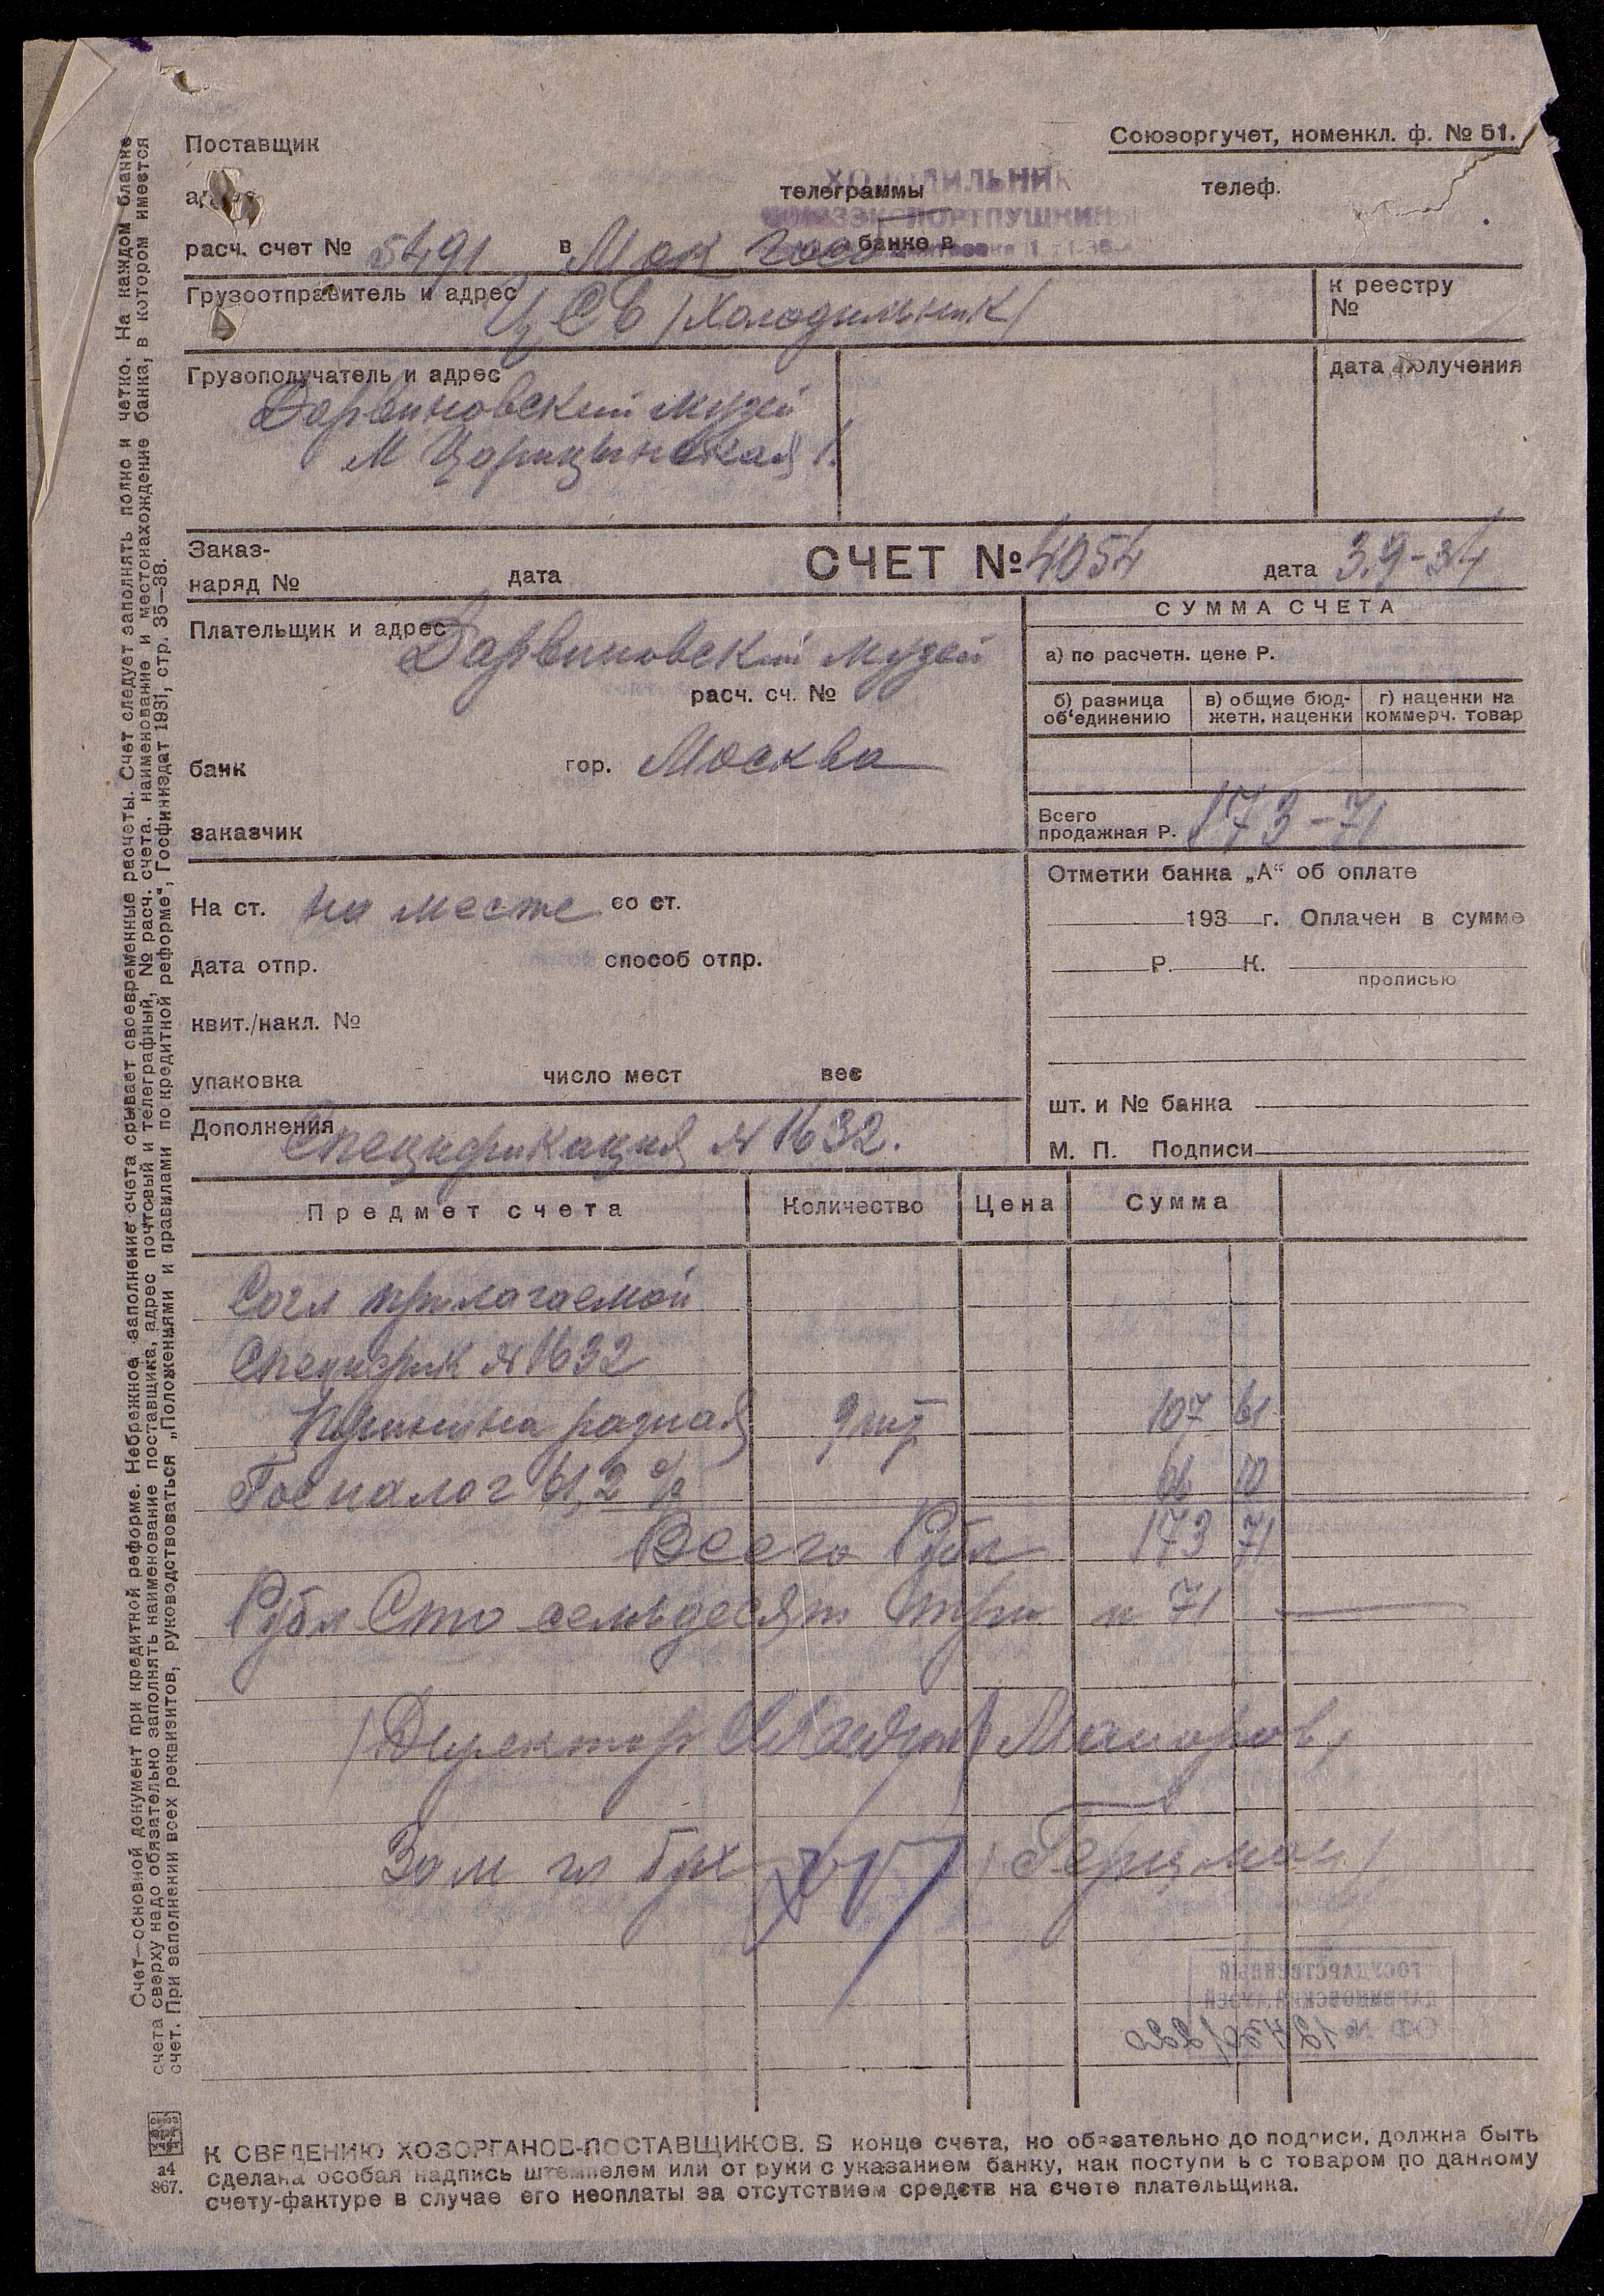 Союзоргучет, номенкл. ф. № 51.
Поставщик
ХОЛОДИЛЬНИК
телеграммы телеф.
расч. счет № 5491 в банке в
Грузоотправитель и адрес /Холодильник/
к реестру
№
Грузополучатель и адрес
дата получения
Дарвиновский музей
М Царицынская 1.
Заказ-
наряд № дата СЧЕТ № 4054 дата 3.9-34
Плательщик и адрес Дарвиновский музей
расч. сч. №
банк гор. Москва
заказчик
СУММА СЧЕТА
а) по расчетн. цене Р.
б) разница об‘единению
в) общие бюджетн. наценки
г) наценки на коммерч. товар
Всего
продажная Р. 173-71
На ст. на месте со ст.
дата отпр. способ отпр.
квит./накл. №
упаковка число мест вес
Дополнения Спецификация № 1632.
Отметки банка „А“ об оплате
193 г. Оплачен в сумме
Р. К.
прописью
шт. и № банка
М. П. Подписи
Предмет счета Количество Цена Сумма
Согл прилагаемой
Специфик № 1632
Пушнина разная 9 шт 107 61
Госналог 61,2 % 66 10
Всего Рубл 173 71
Рубл Сто семьдесят три к 71
/Директор Майоров/
Зам гл бух /Герцман/
ГОСУДАРСТВЕННЫЙ
ДАРВИНОВСКИЙ МУЗЕЙ
ОФ №
Счет—основной документ при кредитной реформе. Небрежное заполнение счета срывает своевременные расчеты. Счет следует заполнять полно и четко. На каждом бланке
счета сверху надо обязательно заполнять наименование поставщика, адрес почтовый и телеграфный, № расч. счета, наименование и местонахождение банка, в котором имеется
счет. При заполнении всех реквизитов, руководствоваться „Положениями и правилами по кредитной реформе“, Госфиниздат 1931, стр. 35—38.
а4
867.
К СВЕДЕНИЮ ХОЗОРГАНОВ-ПОСТАВЩИКОВ. В конце счета, но обязательно до подписи, должна быть
сделана особая надпись штемпелем или от руки с указанием банку, как поступить с товаром по данному
счету-фактуре в случае его неоплаты за отсутствием средств на счете плательщика.